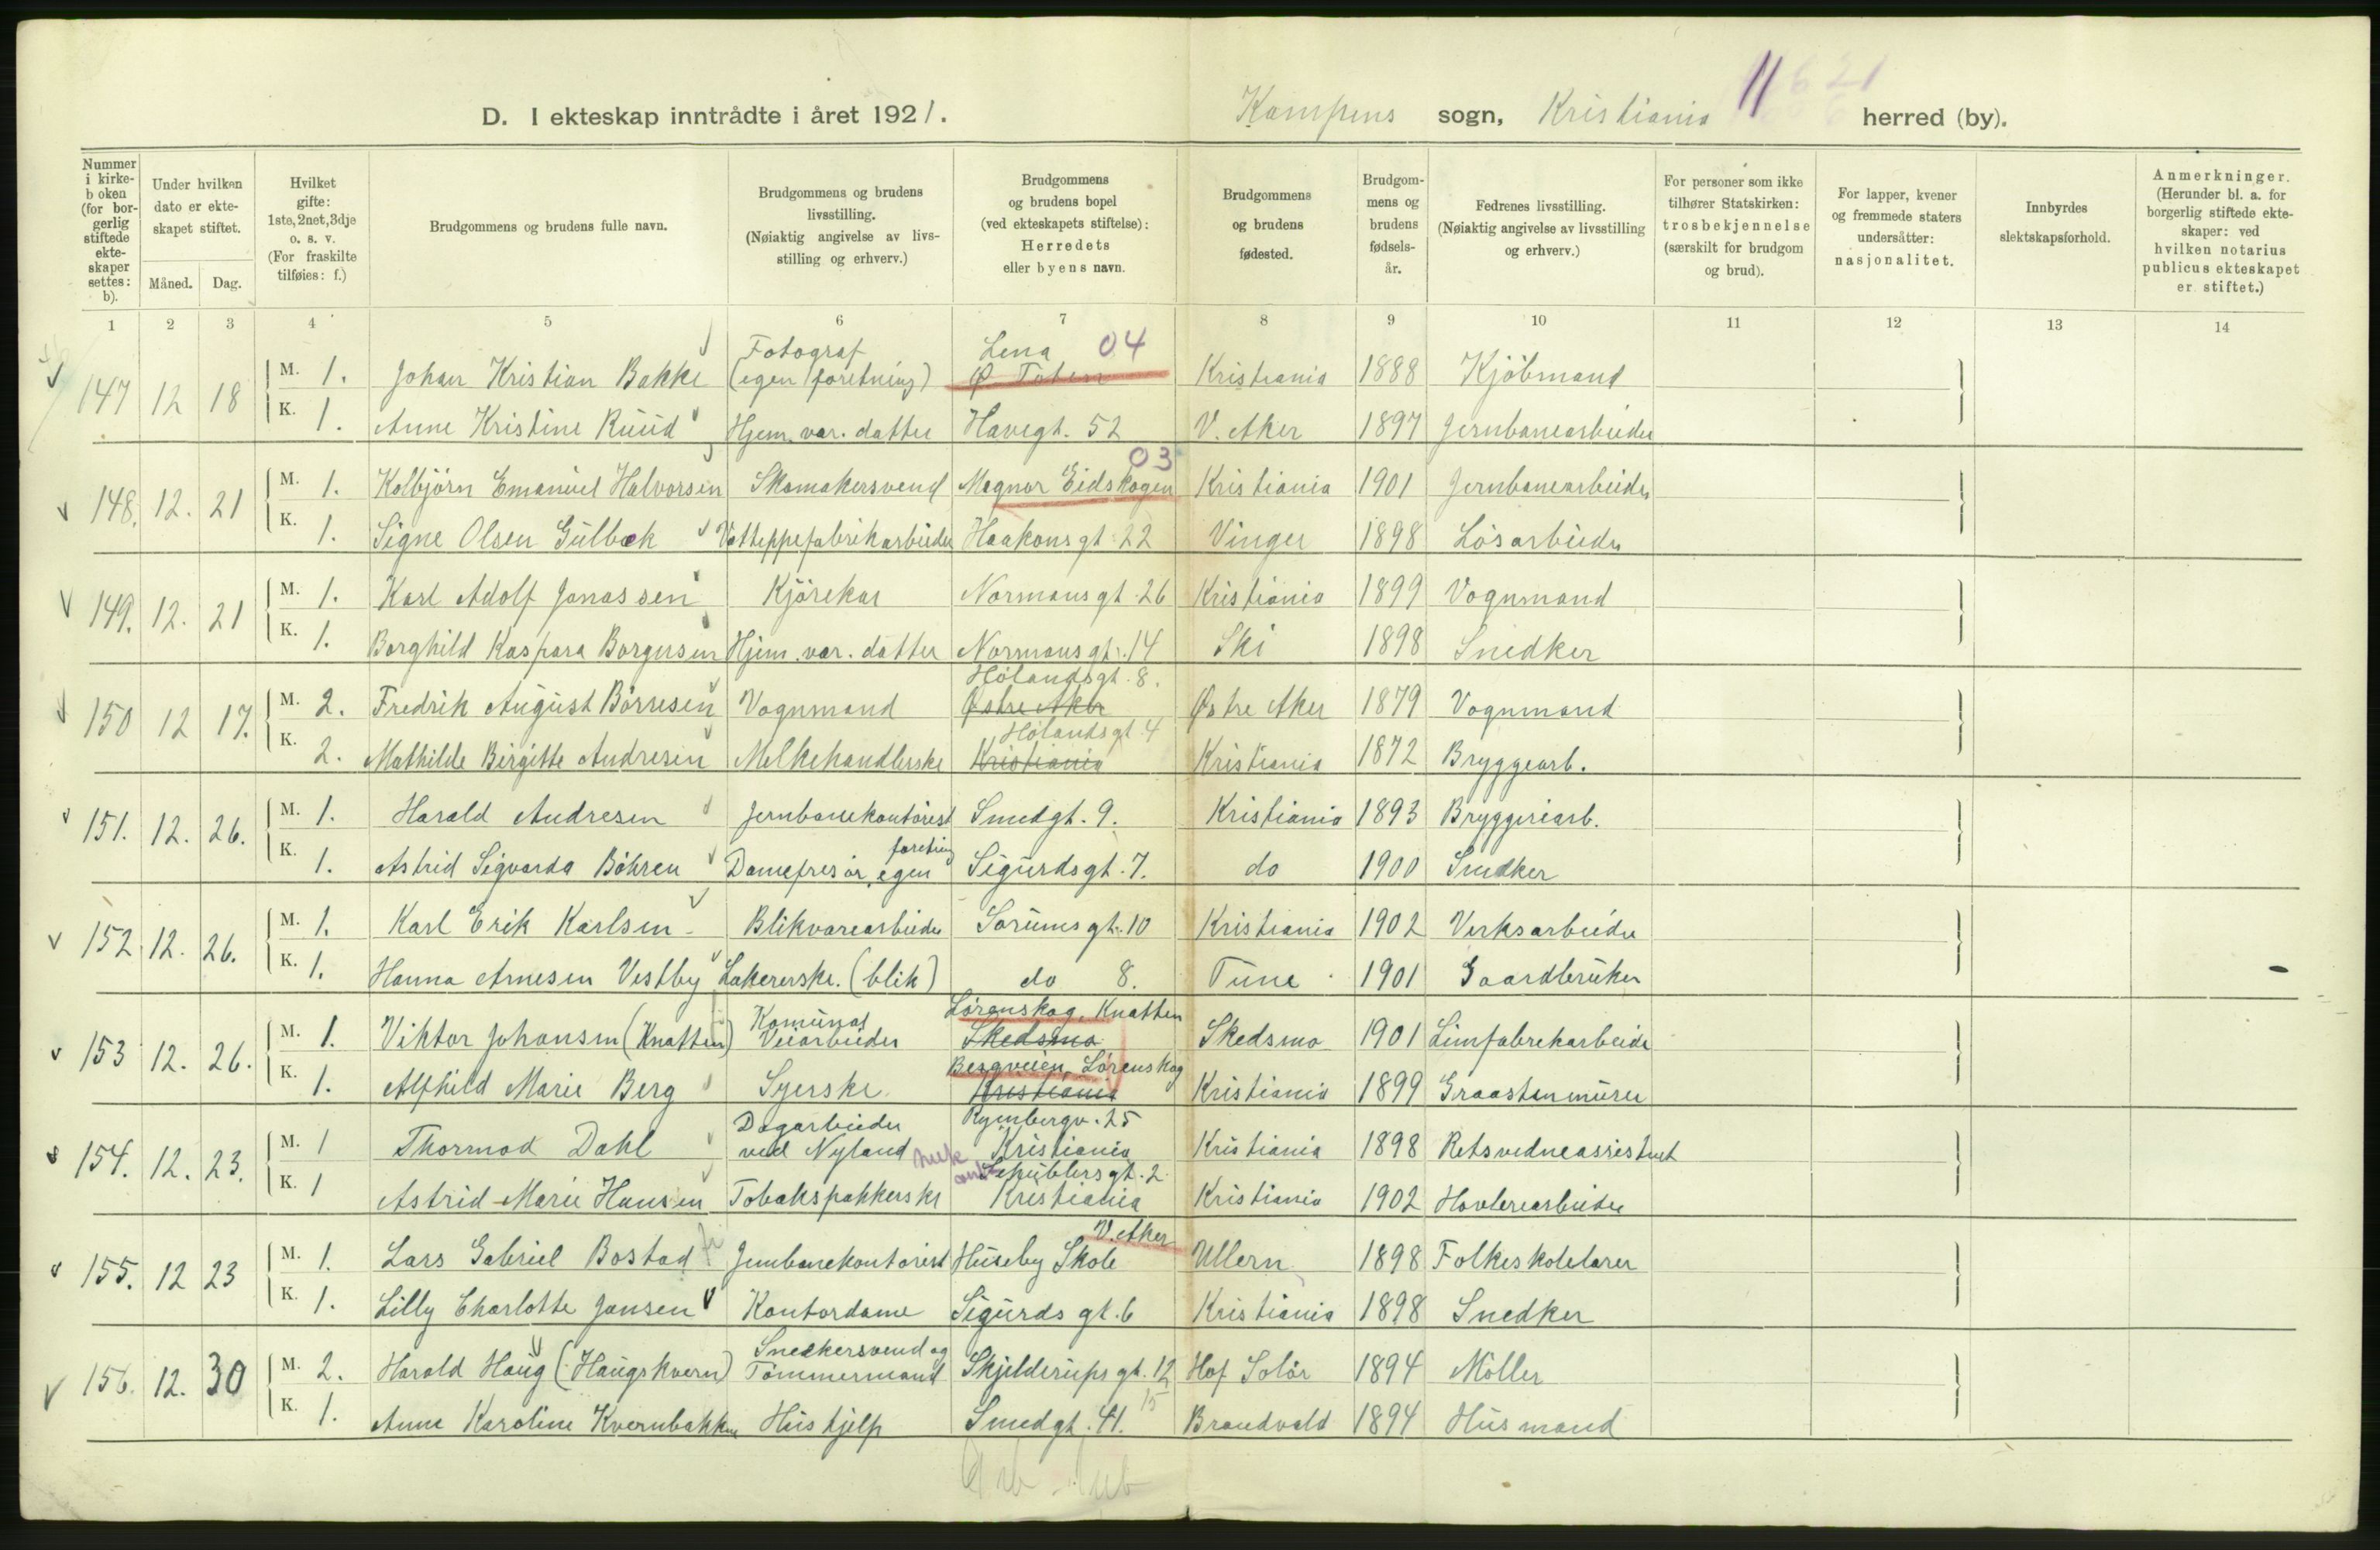 D. I ekteskap inntrådte i året 1921.
Kampens sogn, Kristiania herred (by).
11
6 21
Nummer i kirkeboken (for borgerlig stiftede ekteskaper settes: b).
Under hvilken dato er ekteskapet stiftet.
Måned. Dag.
Hvilket gifte: 1ste, 2net, 3dje o. s. v. (For fraskilte tilføies: f.)
Brudgommens og brudens fulle navn.
Brudgommens og brudens livsstilling. (Nøiaktig angivelse av livsstilling og erhverv.)
Brudgommens og brudens bopel (ved ekteskapets stiftelse): Herredets eller byens navn.
Brudgommens og brudens fødested.
Brudgommens og brudens fødselsår.
Fedrenes livsstilling. (Nøiaktig angivelse av livsstilling og erhverv.)
For personer som ikke tilhører Statskirken: trosbekjennelse (særskilt for brudgom og brud).
For lapper, kvener og fremmede staters undersåtter: nasjonalitet.
Innbyrdes slektskapsforhold.
Anmerkninger. (Herunder bl. a. for borgerlig stiftede ekteskaper: ved hvilken notarius publicus ekteskapet er stiftet.)
1 2 3 4 5 6 7 8 9 10 11 12 13 14
Fotograf Lena 04
147 12 18 M. 1. Johan Kristian Bakke (egen foretning) Ø Toten Kristiania 1888 Kjöbmand
K. 1. Anne Kristine Ruud Hjem. var. datter Havegt. 52 V. Aker 1897 Jernbanearbeider
03
148. 12. 21 M. 1. Kolbjörn Emanuel Halvorsen Skomakersvend Magnor Eidskogen Kristiania 1901 Jernbanearbeider
K. 1. Signe Olsen Gulbæk Vatteppefabrikarbeider Haakonsgt 22 Vinger 1898 Lösarbeider
149. 12. 21 M. 1. Karl Adolf Jonassen Kjörekar Normansgt. 26 Kristiania 1899 Vognmand
K. 1. Borghild Kaspara Borgersen Hjem. var. datter Normansgt. 14 Ski 1898 Snedker
Hölandsgt. 8.
150 12 17. M. 2. Fredrik August Börresen Vognmand Østre Aker Østre Aker 1879 Vognmand
Hölandsgt 4
K. 2. Mathilde Birgitte Andresen Melkehandlerske Kristiania Kristiania 1872 Bryggearb.
151. 12. 26. M. 1. Harald Andresen Jernbanekontorist Smedgt. 9. Kristiania 1893 Bryggeriarb.
foretning
K. 1. Astrid Sigvarda Böhren Damefrisör, egen Sigurdsgt. 7. do 1900 Snedker
152 12. 26. M. 1. Karl Erik Karlsen Blikvarearbeider Sorumsgt. 10 Kristiania 1902 Verksarbeider
K. 1. Hanna Arnesen Vestby Lakererske. (blik) do 8. Tune 1901 Gaardbruker
Komunal Lørenskog, Knatten
153 12. 26. M. 1. Viktor Johansen (Knatten) Veiarbeider Skedsmo Skedsmo 1901 Limfabrekarbeide
Bergveien, Lörenskog
K. 1. Alfhild Marie Berg Syerske Kristiania Kristiania 1899 Graastenmurer
Dagarbeider Rymbergv. 25
154. 12. 23. M. 1 Thormod Dahl ved Nyland Kristiania Kristiania 1898 Retsvidneassistent
Schüblersgt. 2
K. 1 Astrid Marie Hansen Tobakspakkerske Kristiania Kristiania 1902 Hovleriarbeider
V. Aker
155. 12 23 M. 1. Lars Gabriel Bostad Jernbanekontorist Huseby Skole Ullern 1898 Folkeskolelærer
K. 1. Lilly Charlotte Jansen Kontordame Sigurds gt. 6 Kristiania 1898 Snedker
Snedkersvend og
156. 12. 30 M. 2. Harald Haug (Haugskvern) Tömmermand Skjelderups gt. 12 Hof Solör 1894 Möller
15
K. 1. Anne Karoline Kvernbakken Hushjelp Smedgt. 41. Brandvold 1894 Husmand